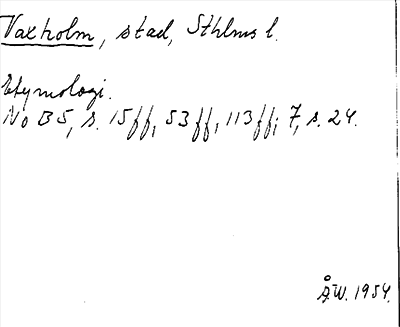 Vaxholm, stad, Sthlms l.
Etymologi.
NoB 5, s. 15ff, 53ff, 113ff; 7, s. 24.
ÅW. 1954.